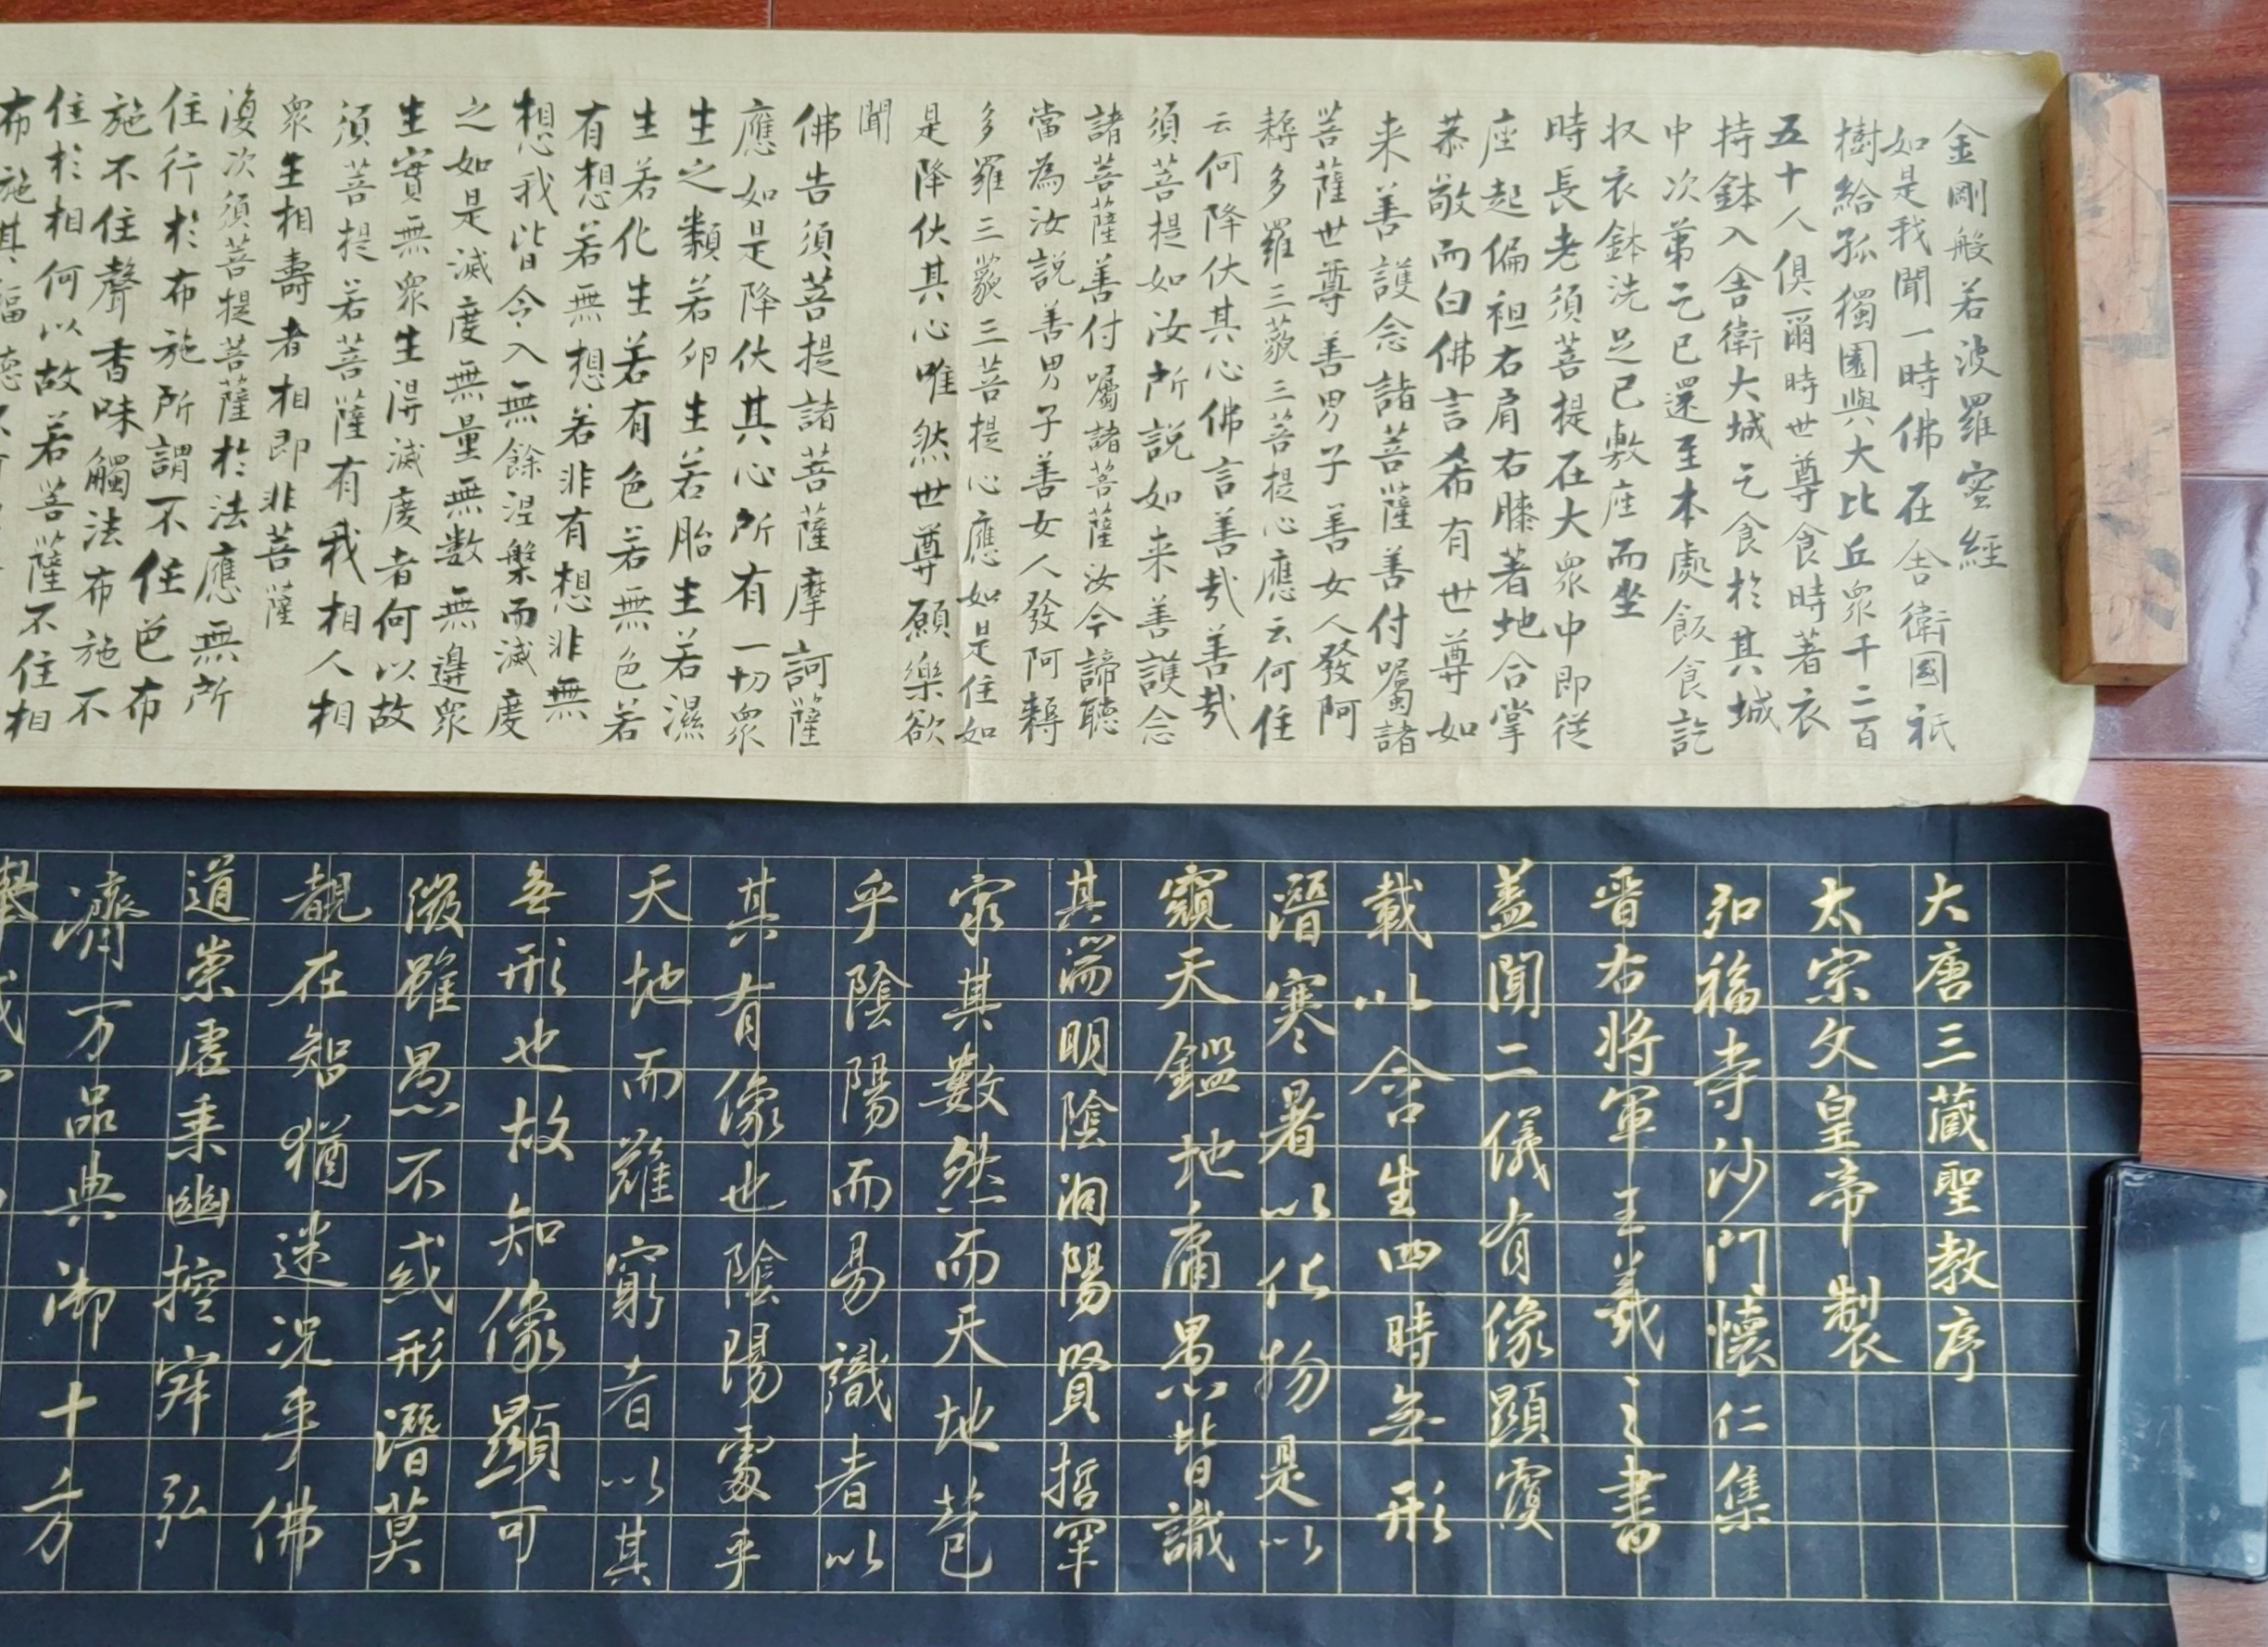 金剛般若波羅蜜經
如是我聞一時佛在舍衛國祇
樹給孤獨園與大比丘眾千二百
五十人俱爾時世尊食時著衣
持鉢入舍衛大城乞食於其城
中次第乞已還至本處飯食訖
収衣鉢洗足已敷座而坐
時長老須菩提在大眾中即從
座起偏袒右肩右膝著地合掌
恭敬而白佛言希有世尊如
来善護念諸菩薩善付囑諸
菩薩世尊善男子善女人發阿
耨多羅三藐三菩提心應云何住
云何降伏其心佛言善哉善哉
須菩提如汝所說如来善護念
諸菩薩善付囑諸菩薩汝今諦聽
當為汝說善男子善女人發阿耨
多羅三藐三菩提心應如是住如
是降伏其心唯然世尊願樂欲
聞
佛告須菩提諸菩薩摩訶薩
應如是降伏其心所有一切眾
生之類若卵生若胎生若濕
生若化生若有色若無色若
有想若無想若非有想非無
想我皆令入無餘涅槃而滅度
之如是滅度無量無数無邊眾
生實無眾生得滅度者何以故
須菩提若菩薩有我相人相
眾生相壽者相即非菩薩
復次須菩提菩薩於法應無所
住行於布施所謂不住色布
施不住聲香味觸法布施不
住於相何以故若菩薩不住相
布施其福德不
大唐三藏聖教序
太宗文皇帝製
弘福寺沙門懷仁集
晉右將軍王羲之書
蓋聞二儀有像顯覆
載以含生四時無形
潛寒暑以化物是以
窺天鑑地庸愚皆識
其端明陰洞陽賢哲罕
窮其數然而天地苞
乎陰陽而易識者以
其有像也陰陽處乎
天地而難窮者以其
無形也故知像顯可
徵雖愚不或形潛莫
覩在智猶迷況乎佛
道崇虛乘幽控寂弘
濟万品典御十方
舉威